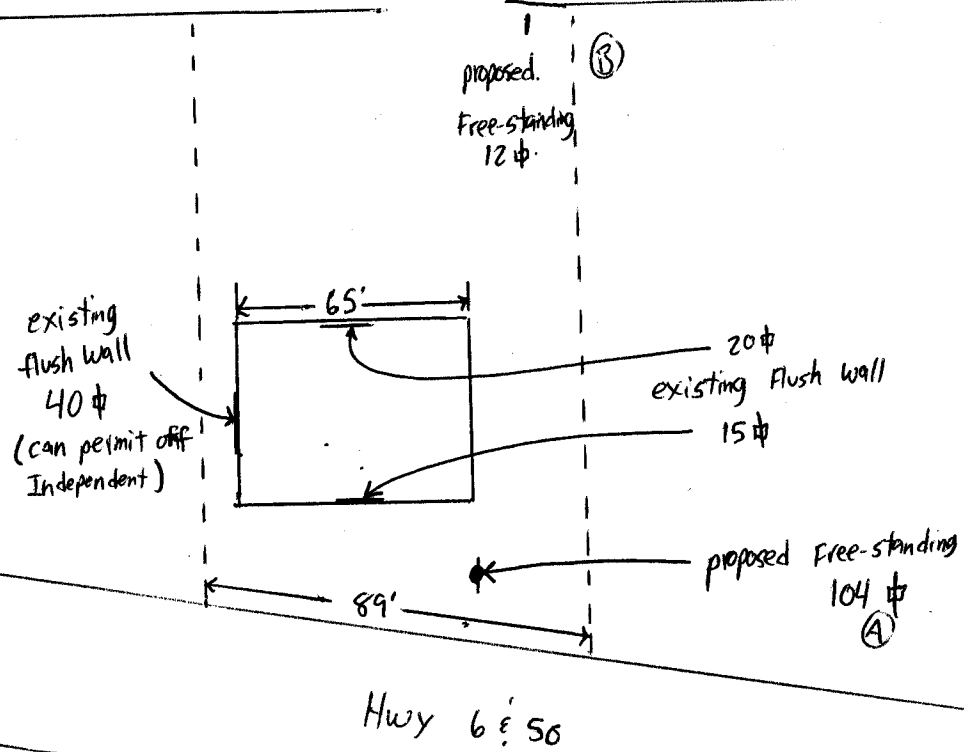 proposed.
Free-standing
12 ⌽.
B
65'
existing
flush wall
40 ⌽
(can permit off
Independent)
20 ⌽
existing Flush wall
15 ⌽
proposed Free-standing
104 ⌽
A
89'
Hwy 6 & 50